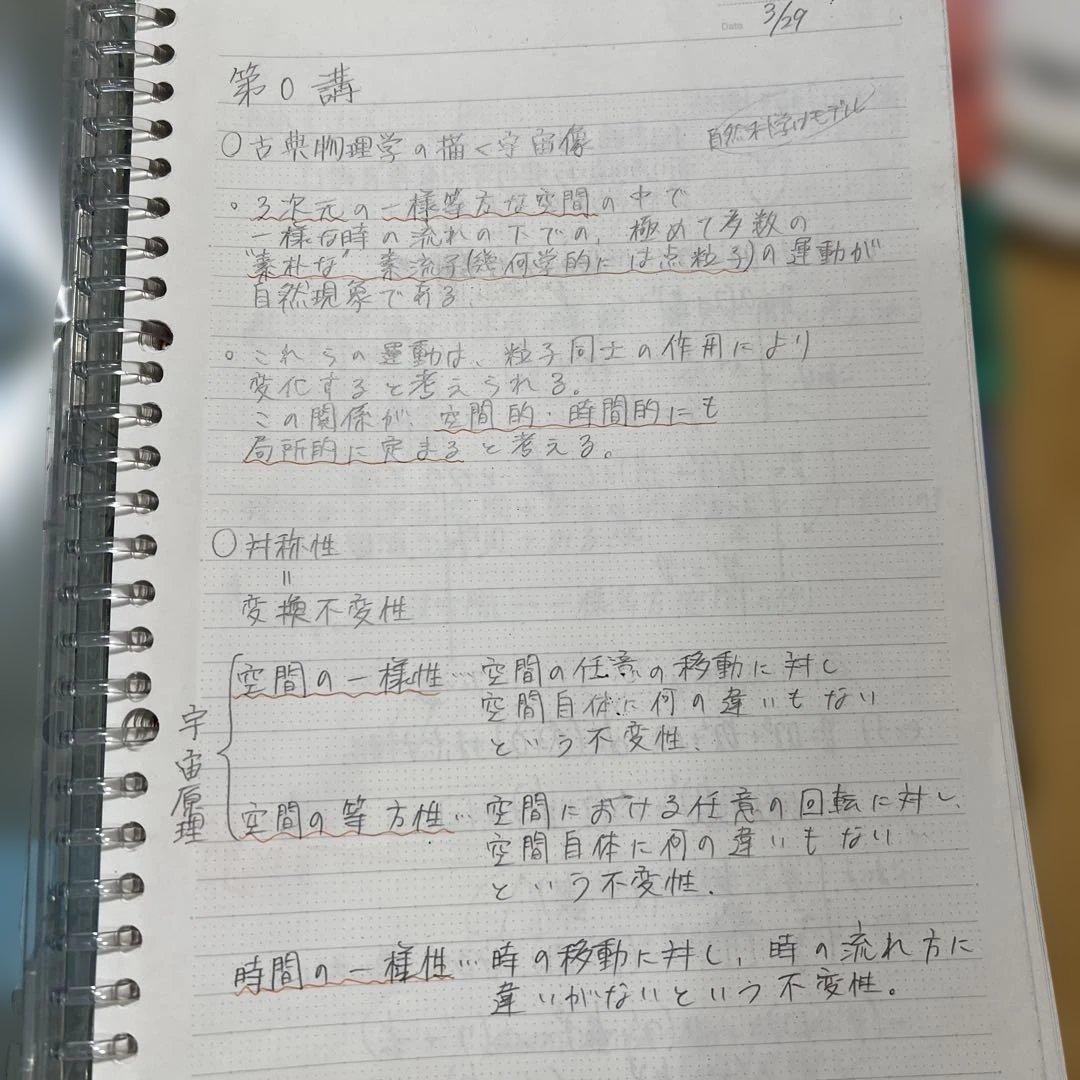 Date 3/29
第0講
○古典物理学の描く宇宙像
自然科学はモデル
。3次元の一様等方な空間の中で
一様な時の流れの下での、極めて多数の
"素朴な" 素流子(幾何学的には点粒子)の運動が
自然現象である.
。これらの運動は、粒子同士の作用により
変化すると考えられる。
この関係が、空間的・時間的にも
局所的に定まると考える。
○対称性
=
変換不変性
宇宙原理
空間の一様性…空間の任意の移動に対し
空間自体に何の違いもない
という不変性.
空間の等方性…空間における任意の回転に対し、
空間自体に何の違いもない
という不変性.
時間の一様性…時の移動に対し、時の流れ方に
違いがないという不変性。